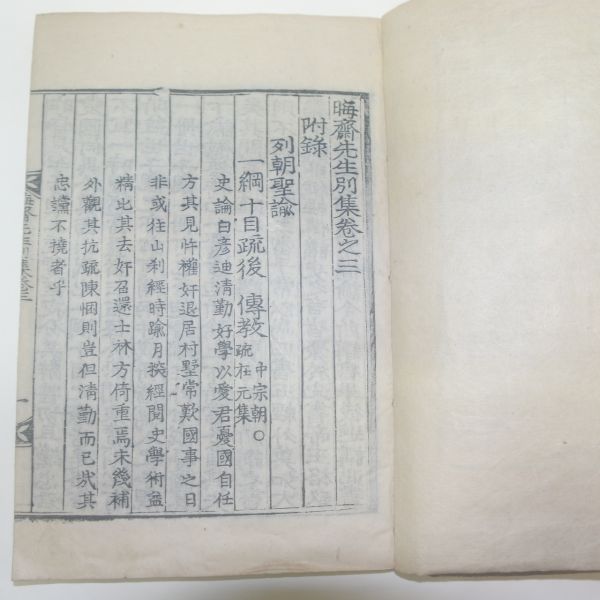 晦齋先生別集卷之三
附錄
列朝聖諭
一綱十目疏後 傳教 中宗朝○疏在元集
史論曰彦迪淸勤好學以愛君憂國自任
方其見忤權奸退居村墅常歎國事之日
非或往山刹經時踰月披經閱史學術益
精比其去奸召還士林方倚重焉未幾補
外觀其抗疏陳悃則豈但淸勤而已哉其
忠讜不撓者乎
晦齋先生別集卷三
一